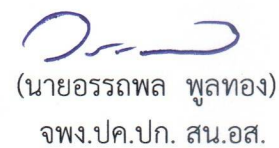 (นายอรรถพล พูลทอง)
จพง.ปค.ปก. สน.อส.